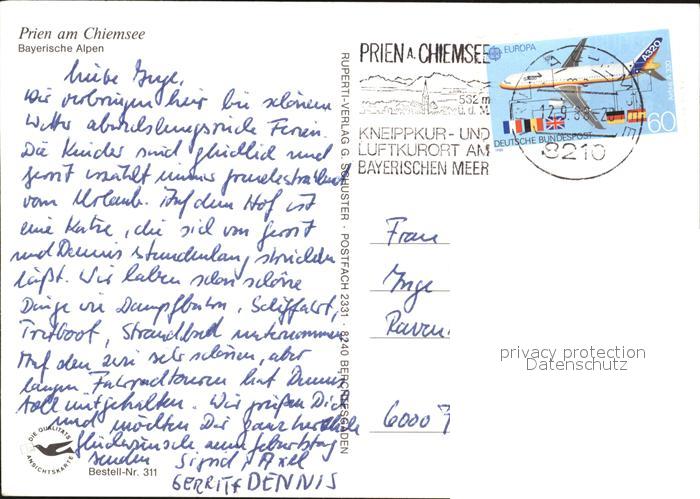 Prien am Chiemsee
Bayerische Alpen
Liebe Inge,
Wir verbringen hier bei schönem
Wetter abwechslungsreiche Ferien.
Die Kinder sind glücklich und
Gerrit erzählt immer freudestrahlend
vom Urlaub. Auf dem Hof ist
eine Katze, die sich von Gerrit
und Dennis stundenlang streicheln
läßt. Wir haben schon schöne
Dinge wie Dampfbahn, Schiffahrt,
Tretboot, Strandbad unternommen.
Auf den zwei sehr schönen, aber
langen Fahrradtouren hat Dennis
toll mitgehalten. Wir grüßen Dich
und möchten Dir ganz herzliche
Glückwünsche zum Geburtstag
senden Sigrid Axel
GERRIT + DENNIS
DIE QUALITÄTS
ANSICHTSKARTE
Bestell-Nr. 311
RUPERTI-VERLAG G. SCHUSTER · POSTFACH 2331 · 8240 BERCHTESGADEN
PRIEN A. CHIEMSEE
532 m
ü. d. M.
KNEIPPKUR- UND
LUFTKURORT AM
BAYERISCHEN MEER
EUROPA
A320
60
DEUTSCHE BUNDESPOST
8210
Frau
Inge
Raven
6000
privacy protection
Datenschutz